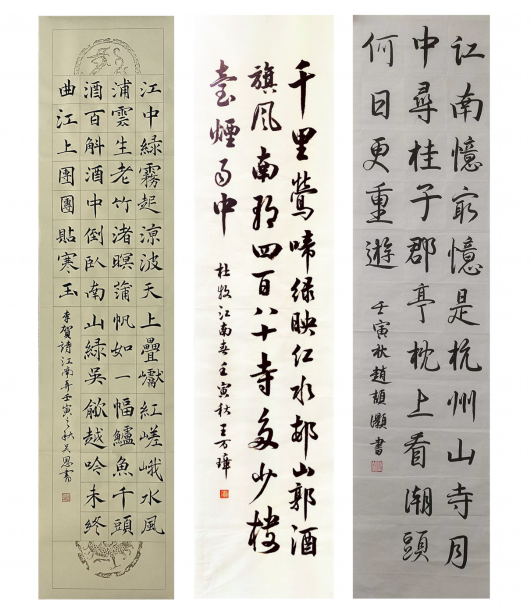 江南憶最憶是杭州山寺月
中尋桂子郡亭枕上看潮頭
何日更重遊
壬寅秋趙頡灝書
千里鶯啼绿映红水邨山郭酒
旗风南朝四百八十寺多少楼
臺煙雨中
杜牧江南春壬寅秋王万璋
江中綠霧起涼波天上疊巘紅嵯峨水風
浦雲生老竹渚暝蒲帆如一幅鱸魚千頭
酒百斛酒中倒臥南山綠吳歈越吟未終
曲江上團團貼寒玉
李賀詩江南弄壬寅之秋恩書